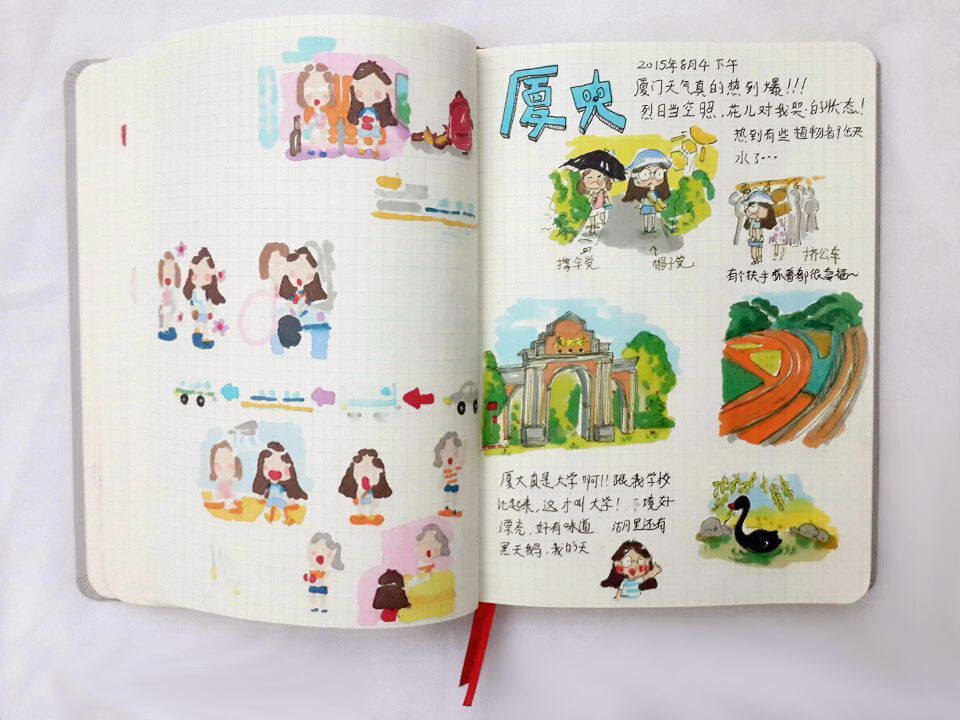 厦大
2015年8月4 下午
厦门天气真的热到爆!!!
烈日当空照,花儿对我哭的状态!
热到有些植物都快
水了…
撑伞党
帽子党
挤公车
有个扶手抓着都很幸福~
厦大真是大学啊!!跟我学校
比起来,这才叫大学! 境好
漂亮,好有味道 湖里还有
黑天鹅,我的天